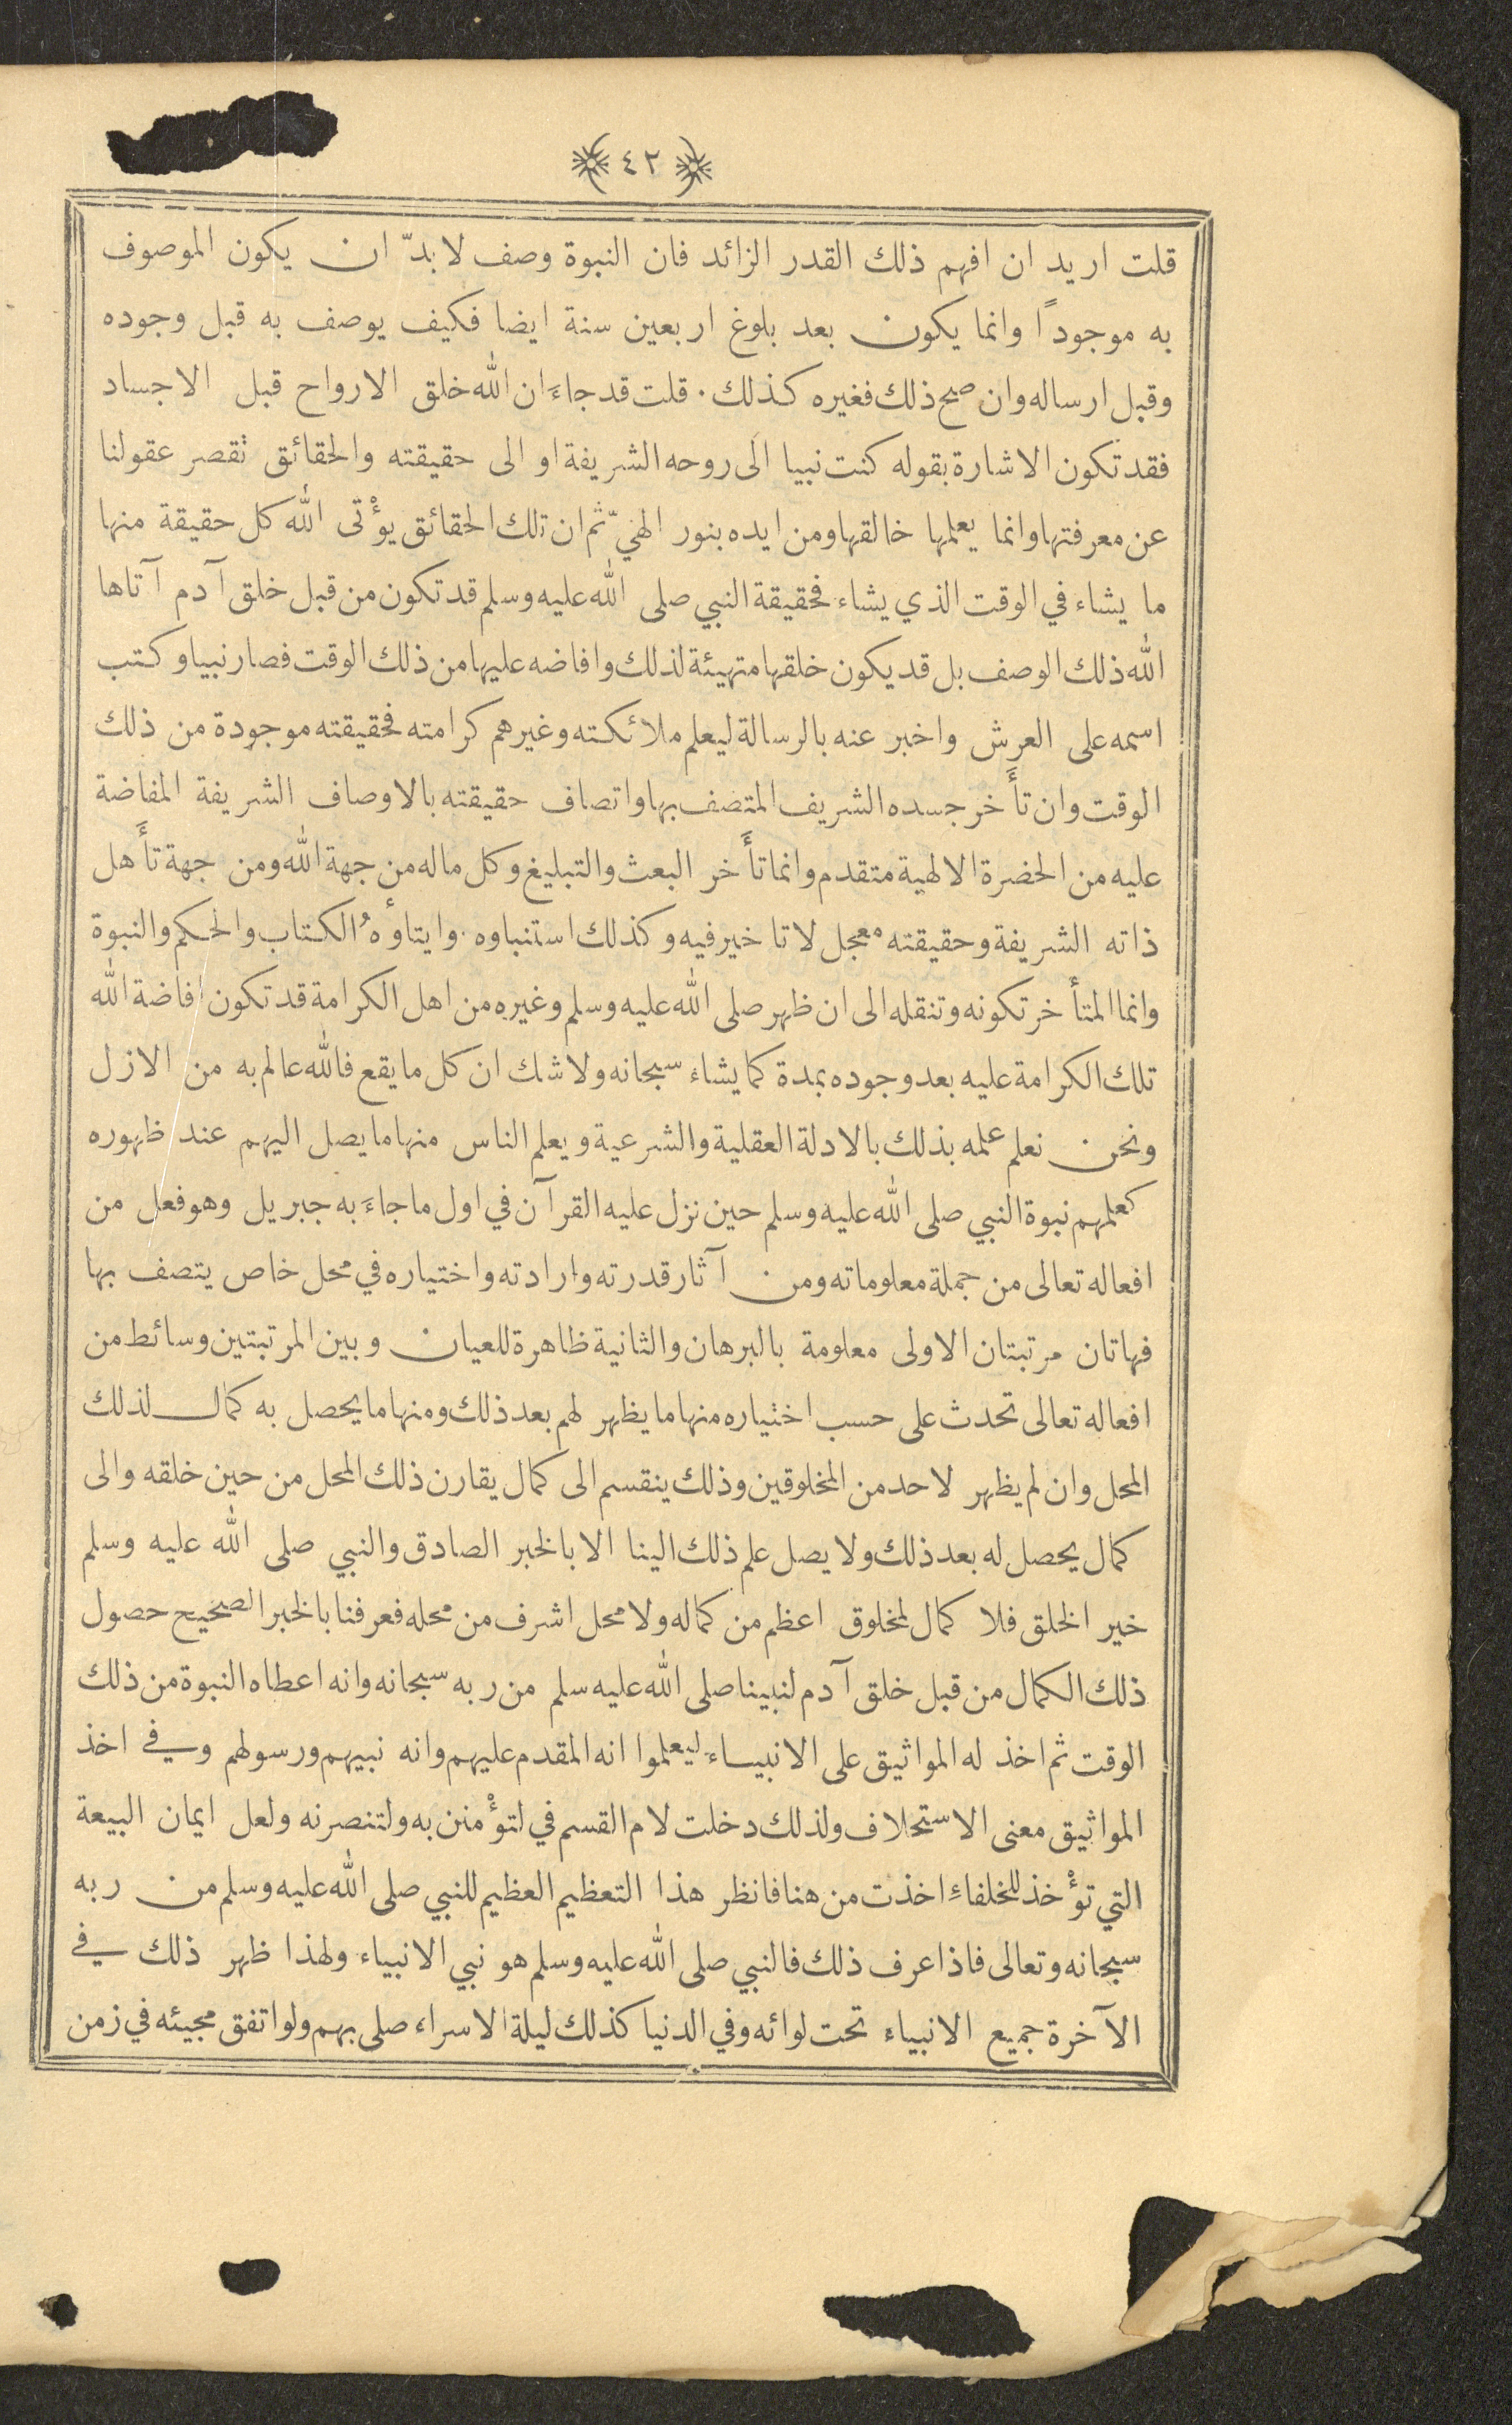 ٤٢
قلت اريد ان افهم ذلك القدر الزائد فان النبوة وصف لا بدّ ان يكون الموصوف
به موجودًا وانما يكون بعد بلوغ اربعين سنة ايضا فكيف يوصف به قبل وجوده
وقبل ارساله وان صح ذلك فغيره كذلك . قلت قد جاءَ ان الله خلق الارواح قبل الاجساد
فقد تكون الاشارة بقوله كنت نبيا الى روحه الشريفة او الى حقيقته والحقائق تقصر عقولنا
عن معرفتها وانما يعلمها خالقها ومن ايده بنور الهيّ ثم ان تلك الحقائق يؤْتى الله كل حقيقة منها
ما يشاء في الوقت الذي يشاء فحقيقة النبي صلى الله عليه وسلم قد تكون من قبل خلق آدم آتاها
الله ذلك الوصف بل قد يكون خلقها متهيئة لذلك وافاضه عليها من ذلك الوقت فصار نبيا وكتب
اسمه على العرش واخبر عنه بالرسالة ليعلم ملائكته وغيرهم كرامته فحقيقته موجودة من ذلك
الوقت وان تأَخر جسده الشريف المتصف بها واتصاف حقيقته بالاوصاف الشريفة المفاضة
عليه من الحضرة الالهية متقدم وانما تأَخر البعث والتبليغ وكل ماله من جهة الله ومن جهة تأَهل
ذاته الشريفة وحقيقته معجل لا تاخير فيه وكذلك استنباوه . وايتاوهُٔ الكتاب والحكم والنبوة
وانما المتأخر تكونه وتنقله الى ان ظهر صلى الله عليه وسلم وغيره من اهل الكرامة قد تكون افاضة الله
تلك الكرامة عليه بعد وجوده بمدة كما يشاء سبحانه ولا شك ان كل ما يقع فالله عالم به من الازل
ونحن نعلم علمه بذلك بالادلة العقلية والشرعية ويعلم الناس منها ما يصل اليهم عند ظهوره
كعلمهم نبوة النبي صلى الله عليه وسلم حين نزل عليه القرآن في اول ما جاءَ به جبريل وهو فعل من
افعاله تعالى من جملة معلوماته ومن آثار قدرته وارادته واختياره في محل خاص يتصف بها
فهاتان مرتبتان الاولى معلومة بالبرهان والثانية ظاهرة للعيان وبين المرتبتين وسائط من
افعاله تعالى تحدث على حسب اختياره منها ما يظهر لهم بعد ذلك ومنها ما يحصل به كمال لذلك
المحل وان لم يظهر لاحد من المخلوقين وذلك ينقسم الى كمال يقارن ذلك المحل من حين خلقه والى
كمال يحصل له بعد ذلك ولا يصل علم ذلك الينا الا بالخبر الصادق والنبي صلى الله عليه وسلم
خير الخلق فلا كمال لمخلوق اعظم من كماله ولا محل اشرف من محله فعرفنا بالخبر الصحيح حصول
ذلك الكمال من قبل خلق آدم لنبينا صلى الله عليه سلم من ربه سبحانه وانه اعطاه النبوة من ذلك
الوقت ثم اخذ له المواثيق على الانبياء ليعلموا انه المقدم عليهم وانه نبيهم ورسولهم وفي اخذ
المواثيق معنى الاستحلاف ولذلك دخلت لام القسم في لتؤْمنن به ولتنصرنه ولعل ايمان البيعة
التي تؤْخذ للخلفاءِ اخذت من هنا فانظر هذا التعظيم العظيم للنبي صلى الله عليه وسلم من ربه
سبحانه وتعالى فاذا عرف ذلك فالنبي صلى الله عليه وسلم هو نبي الانبياء ولهذا ظهر ذلك في
الآخرة جميع الانبياء تحت لوائه وفي الدنيا كذلك ليلة الاسراء صلى بهم ولو اتفق مجيئه في زمن